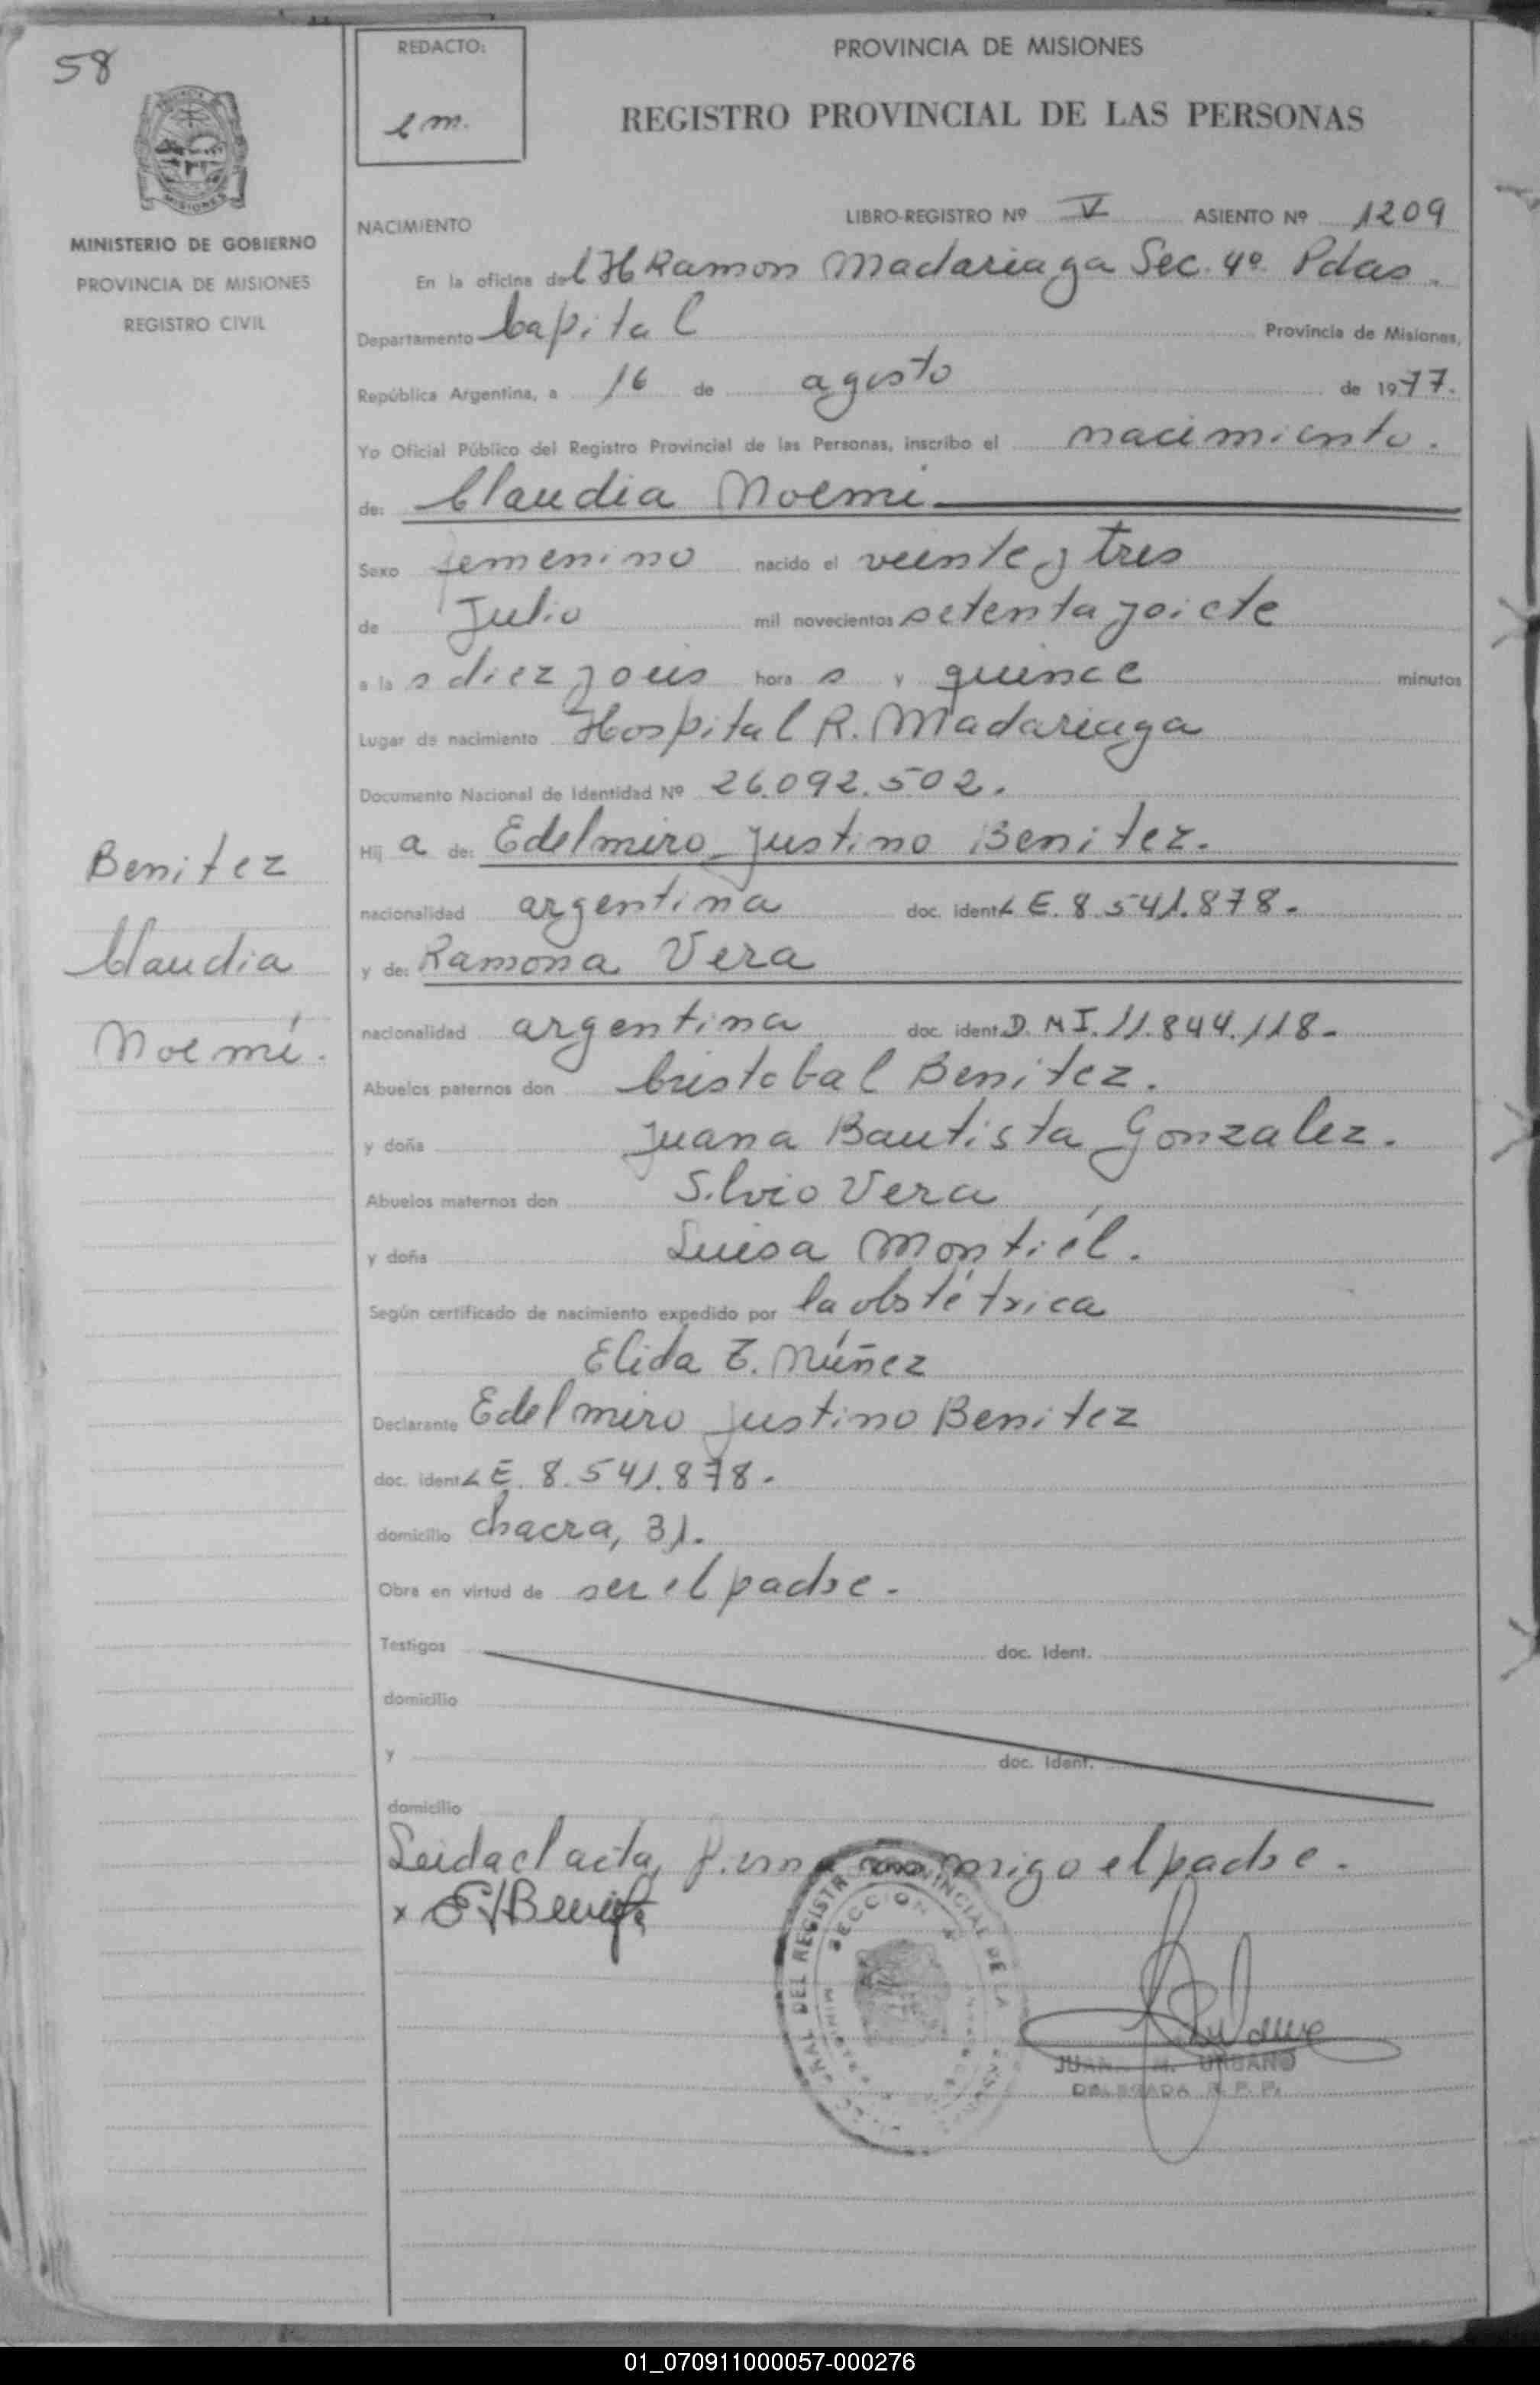 58
REDACTO:
e m.
PROVINCIA DE MISIONES
REGISTRO PROVINCIAL DE LAS PERSONAS
MISIONES
MINISTERIO DE GOBIERNO
PROVINCIA DE MISIONES
REGISTRO CIVIL
NACIMIENTO
LIBRO-REGISTRO Nº V ASIENTO Nº 1209
En la oficina del H Ramon Madariaga Sec. 4º Pdas.
Departamento Capital Provincia de Misiones,
República Argentina, a 16 de agosto de 1977.
Yo Oficial Público del Registro Provincial de las Personas, inscribo el nacimiento.
de: Claudia Noemi
Sexo femenino nacido el veinte y tres
de Julio mil novecientos setenta y siete
a la s diez y seis hora s y quince minutos
Lugar de nacimiento Hospital R. Madariaga
Documento Nacional de Identidad Nº 26.092.502.
Hij a de: Edelmiro Justino Benitez.
nacionalidad argentina doc. ident. L E. 8.541.878.
y de: Ramona Vera
nacionalidad argentina doc. ident. D. N I. 11.844.118.
Abuelos paternos don Cristobal Benitez.
y doña Juana Bautista Gonzalez.
Abuelos maternos don Silvio Vera
y doña Luisa Montiél.
Según certificado de nacimiento expedido por la obstétrica
Elida E. Núñez
Declarante Edelmiro Justino Benitez
doc. ident. L E. 8.541.878.
domicilio chacra, 31.
Obra en virtud de ser el padre.
Testigos doc. Ident.
domicilio
y doc. Ident.
domicilio
Leida el acta, firma conmigo el padre.
x E J Benitez
JUANA M. URBANO
DELEGADA R. P. P.
Benitez
Claudia
Noemí.
01_070911000057-000276